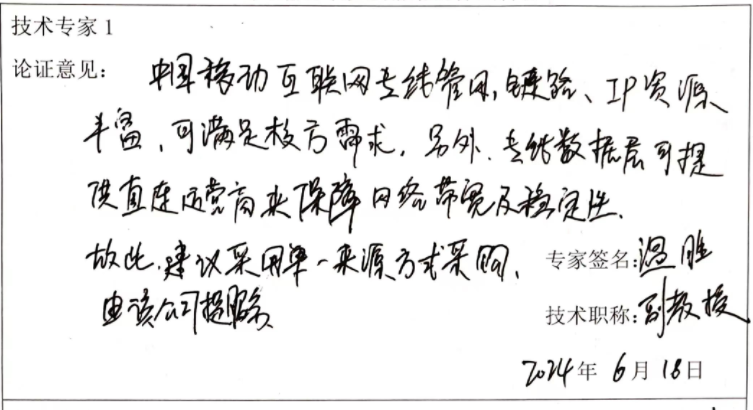 技术专家1
论证意见： 中国移动互联网专线管网,链路、IP资源
丰富，可满足校方需求。另外、专线数据层可提
供直连运营商来保障网络带宽及稳定性.
故此,建议采用单一来源方式采购、 专家签名:温胜
由该公司提服务 技术职称:副教授
2024年6月18日